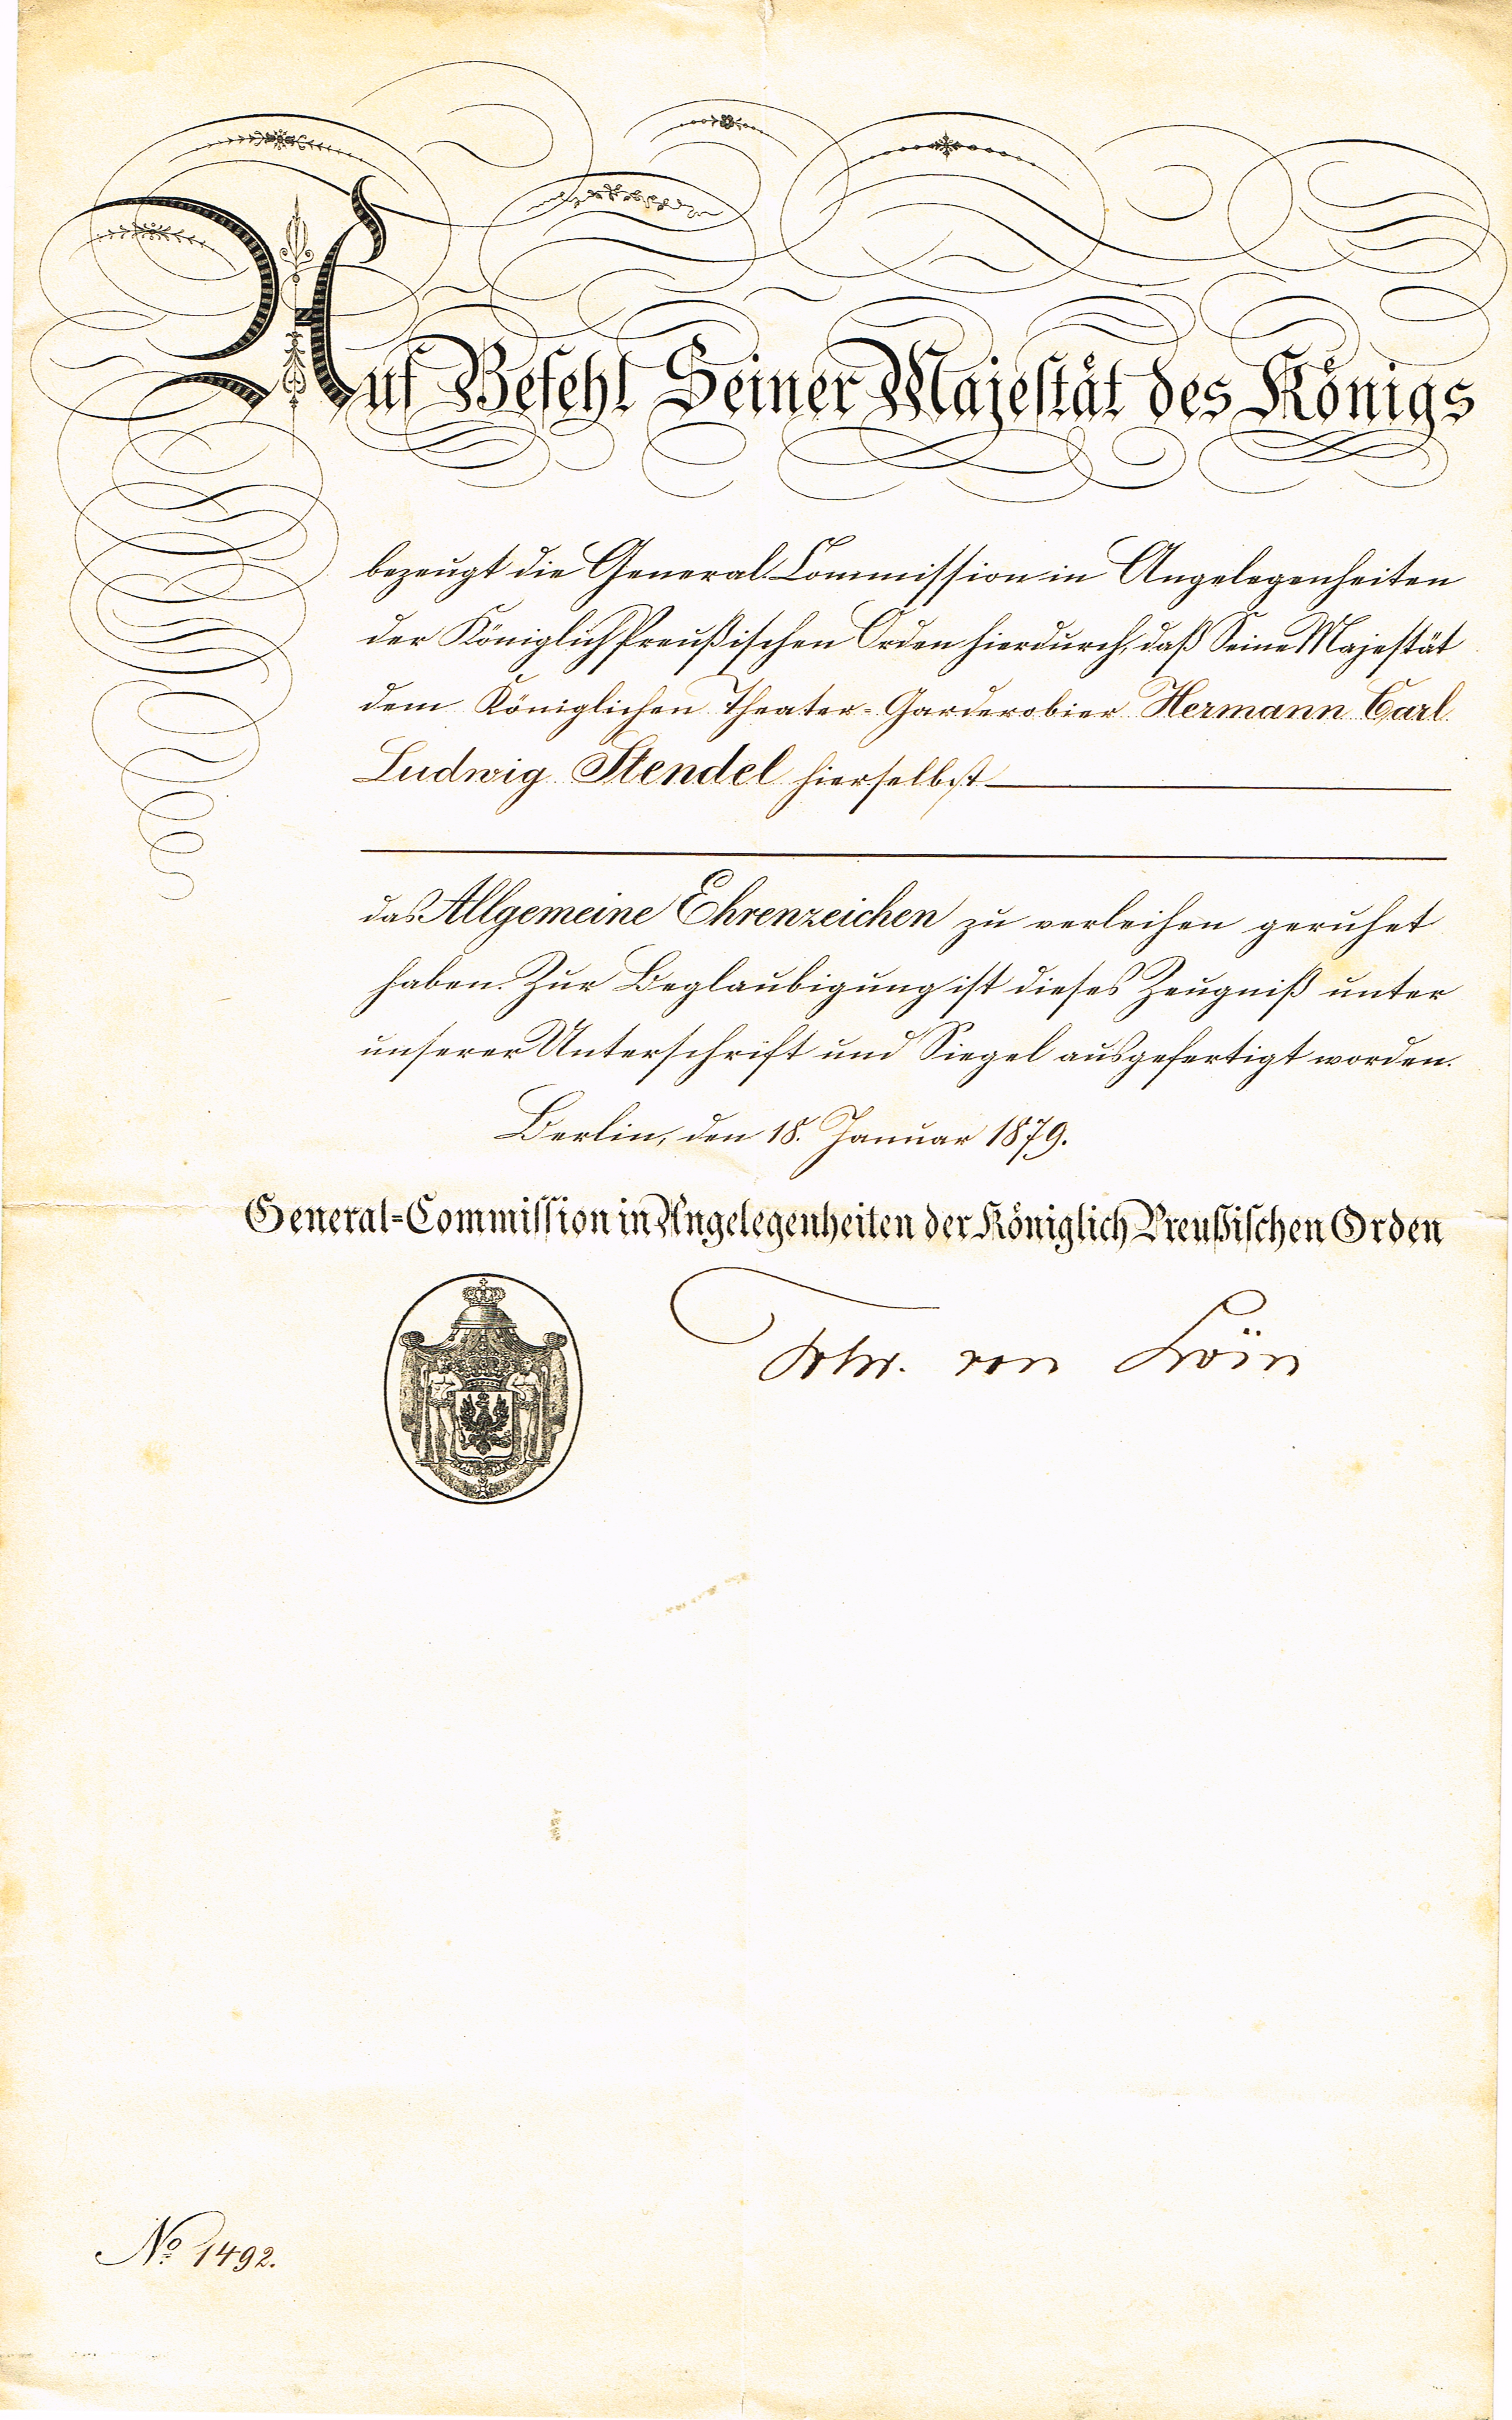 Auf Befehl Seiner Majestät des Königs
bezeugt die General-Commission in Angelegenheiten
der Königlich Preußischen Orden hierdurch, daß Seine Majestät
dem Königlichen Theater-Garderobier Hermann Carl
Ludwig Stendel hierselbst
das Allgemeine Ehrenzeichen zu verleihen geruhet
haben. Zur Beglaubigung ist dieses Zeugniß unter
unserer Unterschrift und Siegel ausgefertigt worden.
Berlin, den 18. Januar 1879.
General-Commission in Angelegenheiten der Königlich Preußischen Orden
Frhr. von Loën
No 1492.